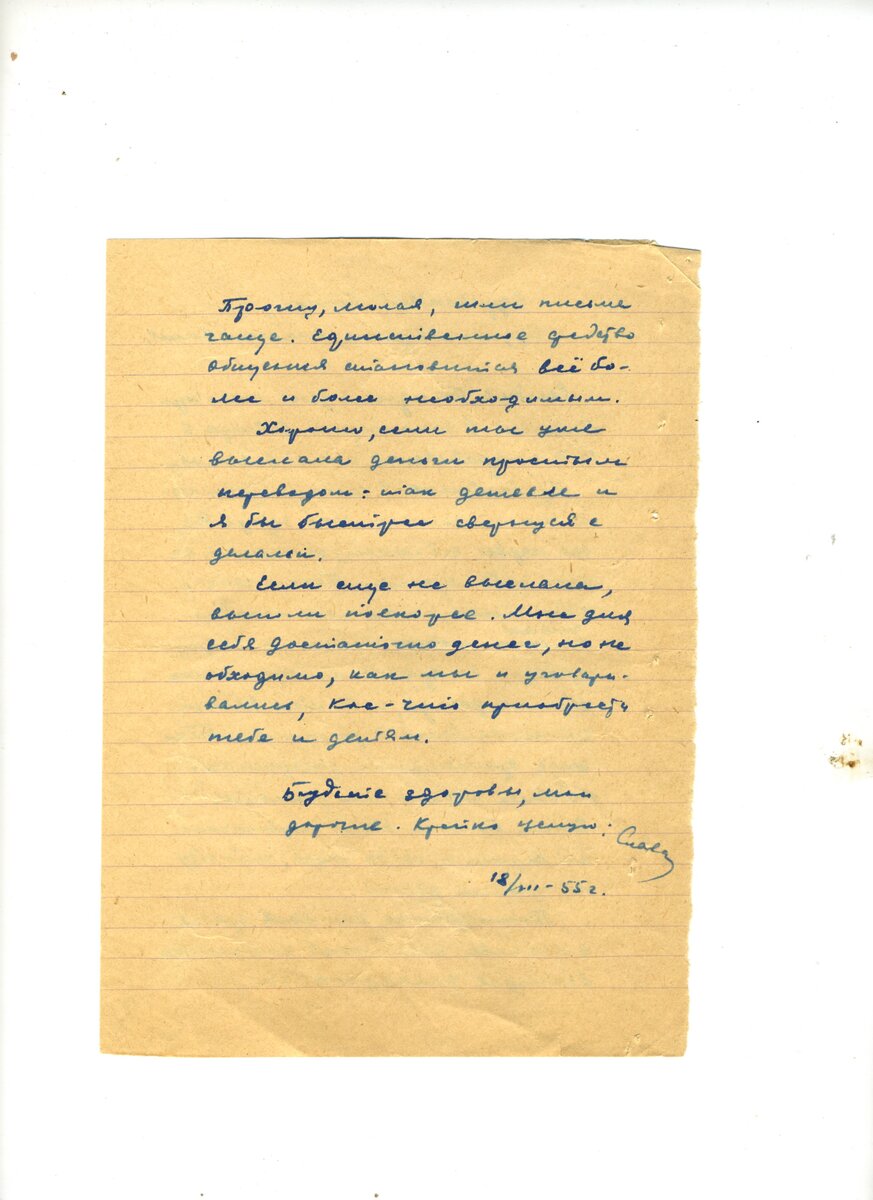 Прошу, милая, шли письма
чаще. Единственное средство
общения становится всё бо-
лее и более необходимым.
Хорошо, если ты уже
выслала деньги простым
переводом: так дешевле и
я бы быстрее свернулся с
делами.
Если еще не выслала,
вышли поскорее. Мне для
себя достаточно денег, но не
обходимо, как мы и уговари-
вались, кое-что приобрести
тебе и детям.
Будьте здоровы, мои
дорогие. Крепко целую: Слава
18/VIII-55 г.